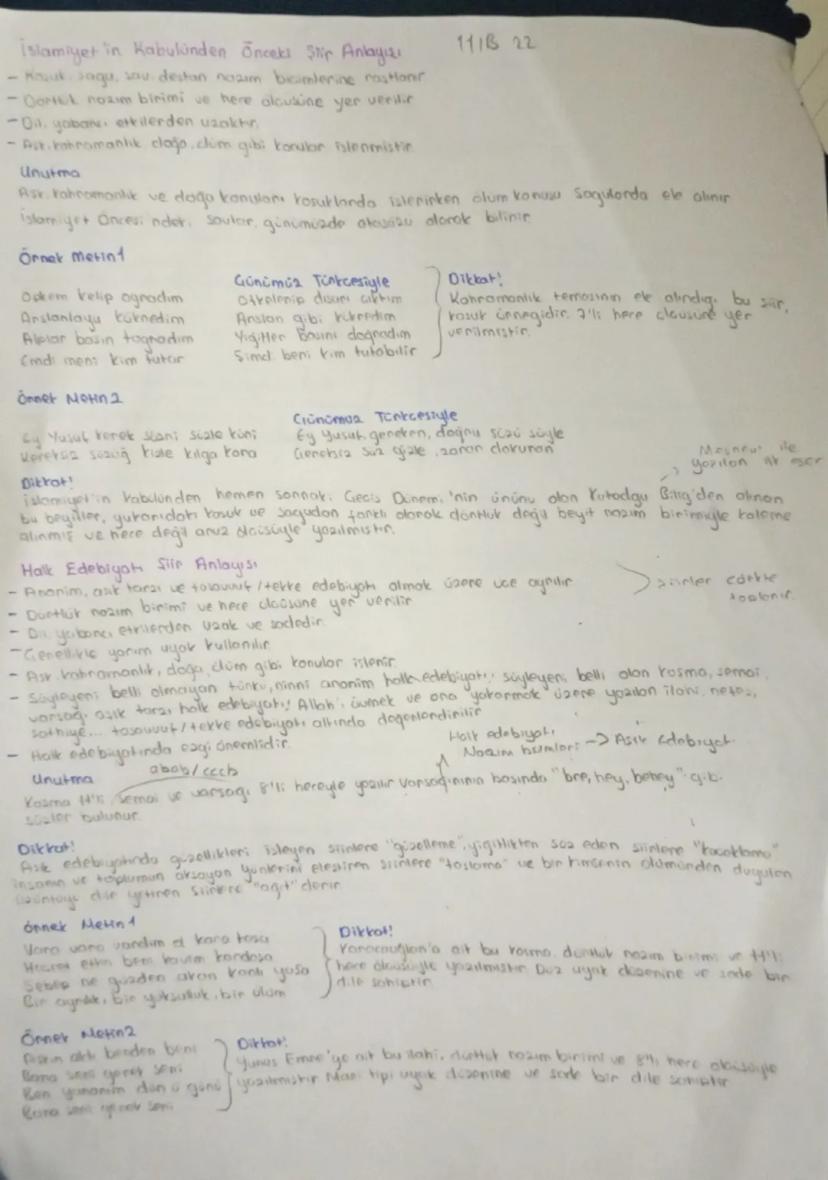 11/B 22
İslamiyet'in Kabulünden Önceki Şiir Anlayışı
- Koşuk, sagu, sav, destan nazım biçimlerine rastlanır
- Dörtlük nazım birimi ve hece ölçüsüne yer verilir
- Dil, yabancı etkilerden uzaktır.
- Aşk, kahramanlık doğa, ölüm gibi konular işlenmiştir
Unutma
Aşk, kahramanlık ve doğa konuları koşuklarda işlenirken ölüm konusu sagularda ele alınır
İslamiyet Öncesi'ndeki savlar, günümüzde atasözü olarak bilinir
Örnek Metin 1
Günümüz Türkçesiyle
Öpkem kelip ogradım
Arslanlayu kökredim
Alplar başın togradım
Emdi meni kim tutar
Öfkelenip dışarı çıktım
Arslan gibi kükredim
Yiğitler başını doğradım
Şimdi beni kim tutabilir
Dikkat!
Kahramanlık temasının ele alındığı bu şiir,
koşuk örneğidir. 7'li hece ölçüsüne yer
verilmiştir.
Örnek Metin 2
Günümüz Türkçesiyle
Ey Yusuf kerek sözni sözle köni
Kereksiz sözüg kizle kılga kora
Ey Yusuf, gereken, doğru sözü söyle
Gereksiz söz gizle, zararı dokunur
Mesnevi ile
yazılan ilk eser
Dikkat!
İslamiyet'in kabulünden hemen sonraki Geçiş Dönemi'nin ürünü olan Kutadgu Bilig'den alınan
bu beyitler, yukarıdaki koşuk ve sagudan farklı olarak dörtlük değil beyit nazım birimiyle kaleme
alınmış ve hece değil aruz ölçüsüyle yazılmıştır.
Halk Edebiyatı Şiir Anlayışı
- Anonim, aşık tarzı ve tasavvuf/tekke edebiyatı olmak üzere üçe ayrılır
şiirler cönkte
toplanır.
- Dörtlük nazım birimi ve hece ölçüsüne yer verilir
- Dil yabancı etkilerden uzak ve sadedir.
- Genellikle yarım uyak kullanılır.
- Aşk, kahramanlık, doğa, ölüm gibi konular işlenir.
- Söyleyeni belli olmayan türkü, ninni anonim halk edebiyatı; söyleyeni belli olan koşma, semai,
varsağı aşık tarzı halk edebiyatı; Allah'ı övmek ve ona yakarmak üzere yazılan ilahi, nefes,
şathiye... tasavvuf/tekke edebiyatı altında değerlendirilir
- Halk edebiyatında ezgi önemlidir.
Halk edebiyatı
Nazım biçimleri -> Aşık Edebiyatı
Unutma
abab/cccb
Koşma 11'li, semai ve varsağı 8'li heceyle yazılır varsağının başında "bre, hey, behey" gibi
sözler bulunur.
Dikkat!
Aşık edebiyatında güzellikleri işleyen şiirlere "güzelleme", yiğitlikten söz eden şiirlere "koçaklama"
insanın ve toplumun aksayan yönlerini eleştiren şiirlere "taşlama" ve bir kimsenin ölümünden duyulan
üzüntüyü dile getiren şiirlere "ağıt" denir.
Örnek Metin 1
Vara vara vardım ol kara taşa
Hasret ettin beni kavim kardaşa
Sebep ne gözden akan kanlı yaşa
Bir ayrılık, bir yoksulluk, bir ölüm
Dikkat!
Karacaoğlan'a ait bu koşma, dörtlük nazım birimi ve 11'li
hece ölçüsüyle yazılmıştır. Düz uyak düzenine ve sade bir
dile sahiptir.
Örnek Metin 2
Aşkın aldı benden beni
Bana seni gerek seni
Ben yanarım dün ü günü
Bana seni gerek seni
Dikkat!
Yunus Emre'ye ait bu ilahi, dörtlük nazım birimi ve 8'li hece ölçüsüyle
yazılmıştır Mani tipi uyak düzenine ve sade bir dile sahiptir